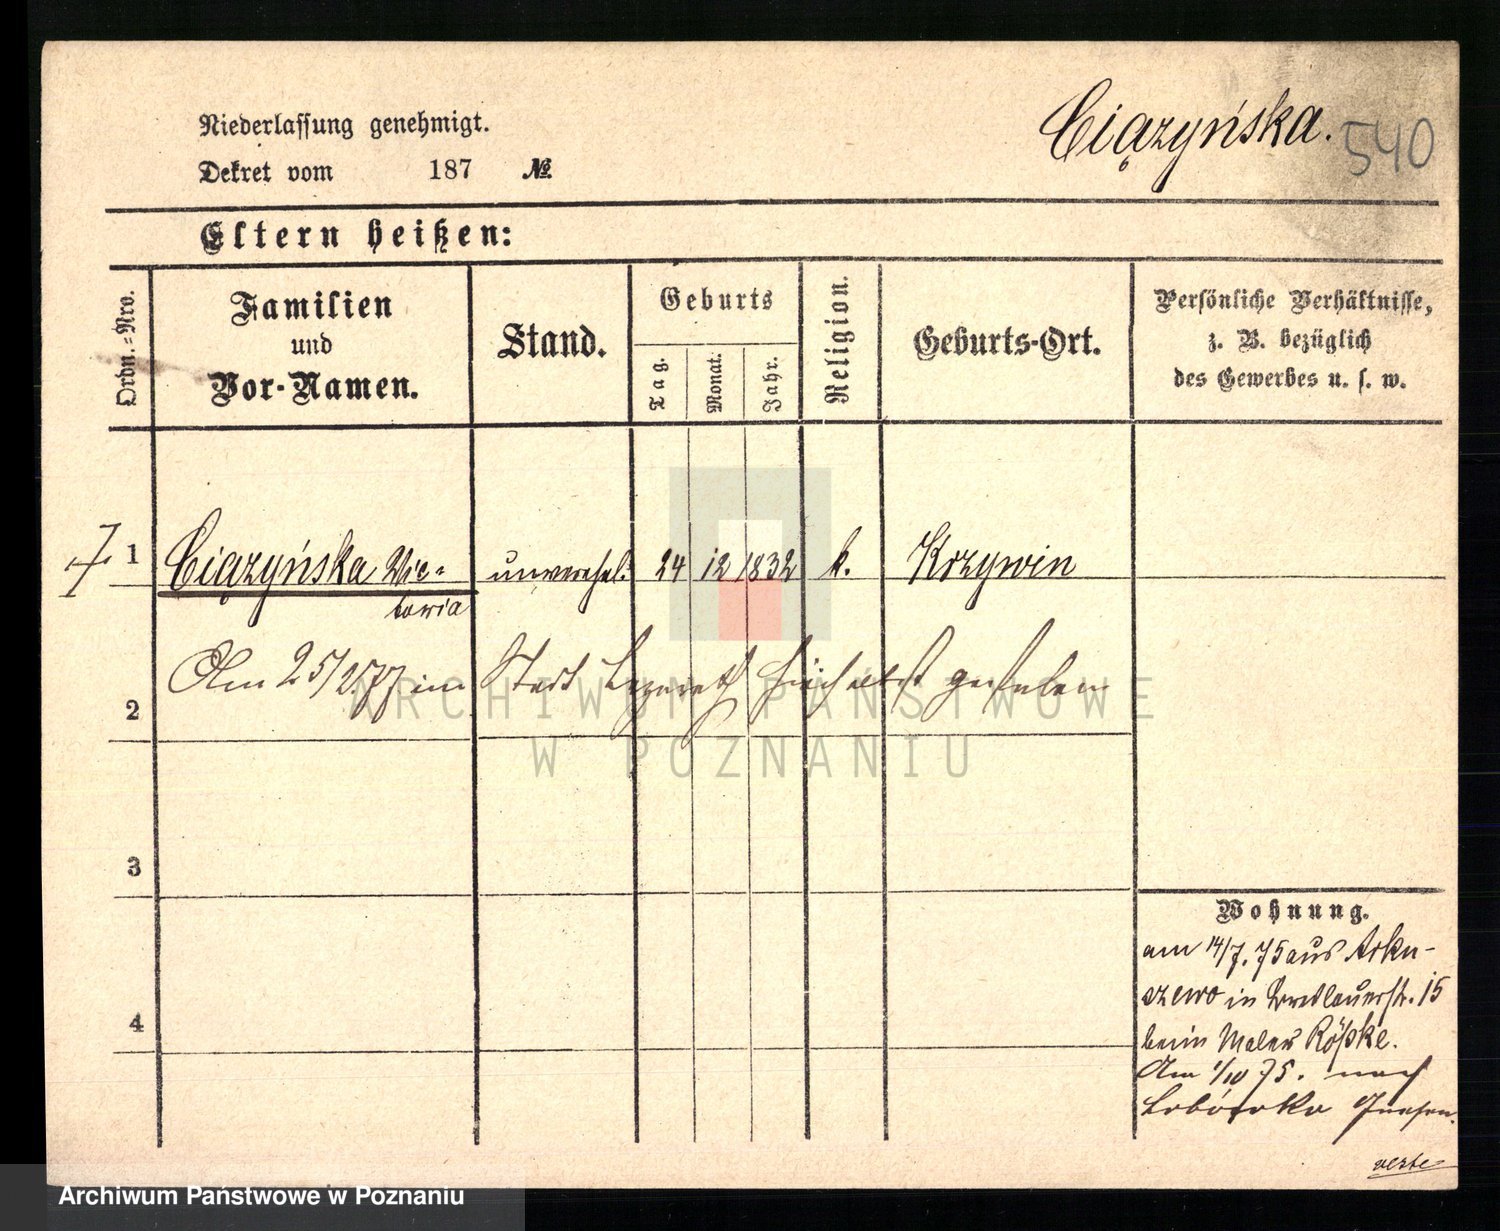 Niederlassung genehmigt.
Dekret vom 187 №
Ciążyńska. 540
Eltern heißen:
Ordn.-Nro.
Familien
und
Vor-Namen.
Stand.
Geburts
Tag.
Monat.
Jahr.
Religion.
Geburts-Ort.
Persönliche Verhältnisse,
z. B. bezüglich
des Gewerbes u. s. w.
1 Ciążyńska Vic=
toria
unverehel. 24 12 1832 k. Krzywin
2 Am 25/2 77 im Stadt Lazareth hierselbst gestorben
3
4
Wohnung.
am 14/7. 75 aus Arku-
szewo in Breslauerstr. 15
beim Maler Röske.
Am 1/10 75. nach
Gnesen.
verte
ARCHIWUM PAŃSTWOWE
W POZNANIU
Archiwum Państwowe w Poznaniu